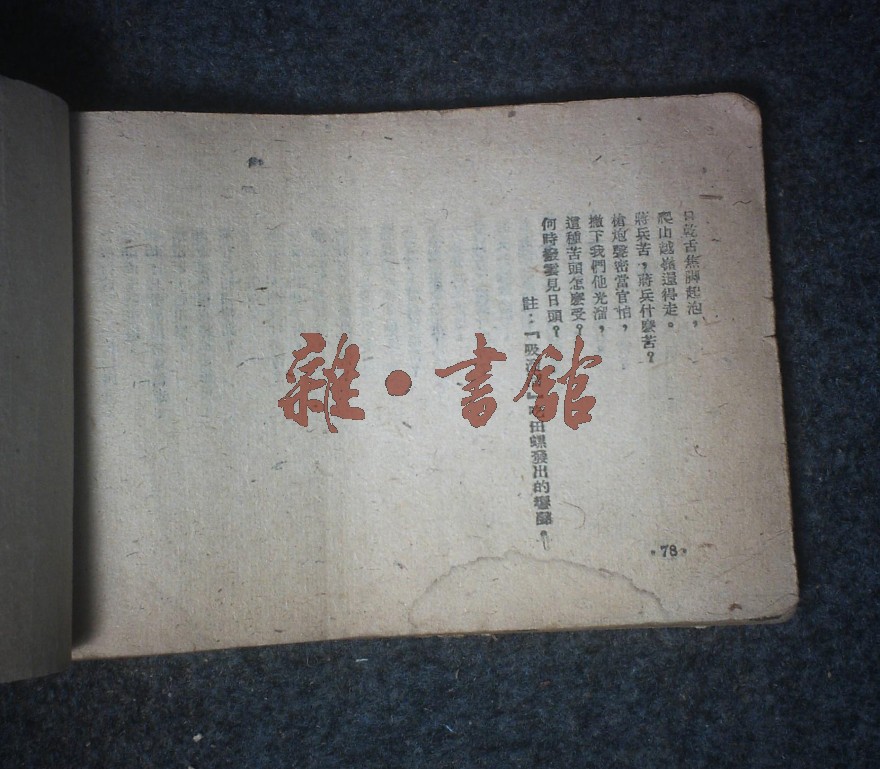 口乾舌焦脚起泡，
爬山越嶺還得走。
蔣兵苦，蔣兵什麼苦？
槍炮聲密當官怕，
撇下我們他先溜，
這種苦頭怎麼受？
何時撥雲見日頭？
註：『吸 田螺發出的聲音。
·78·
雜·書館